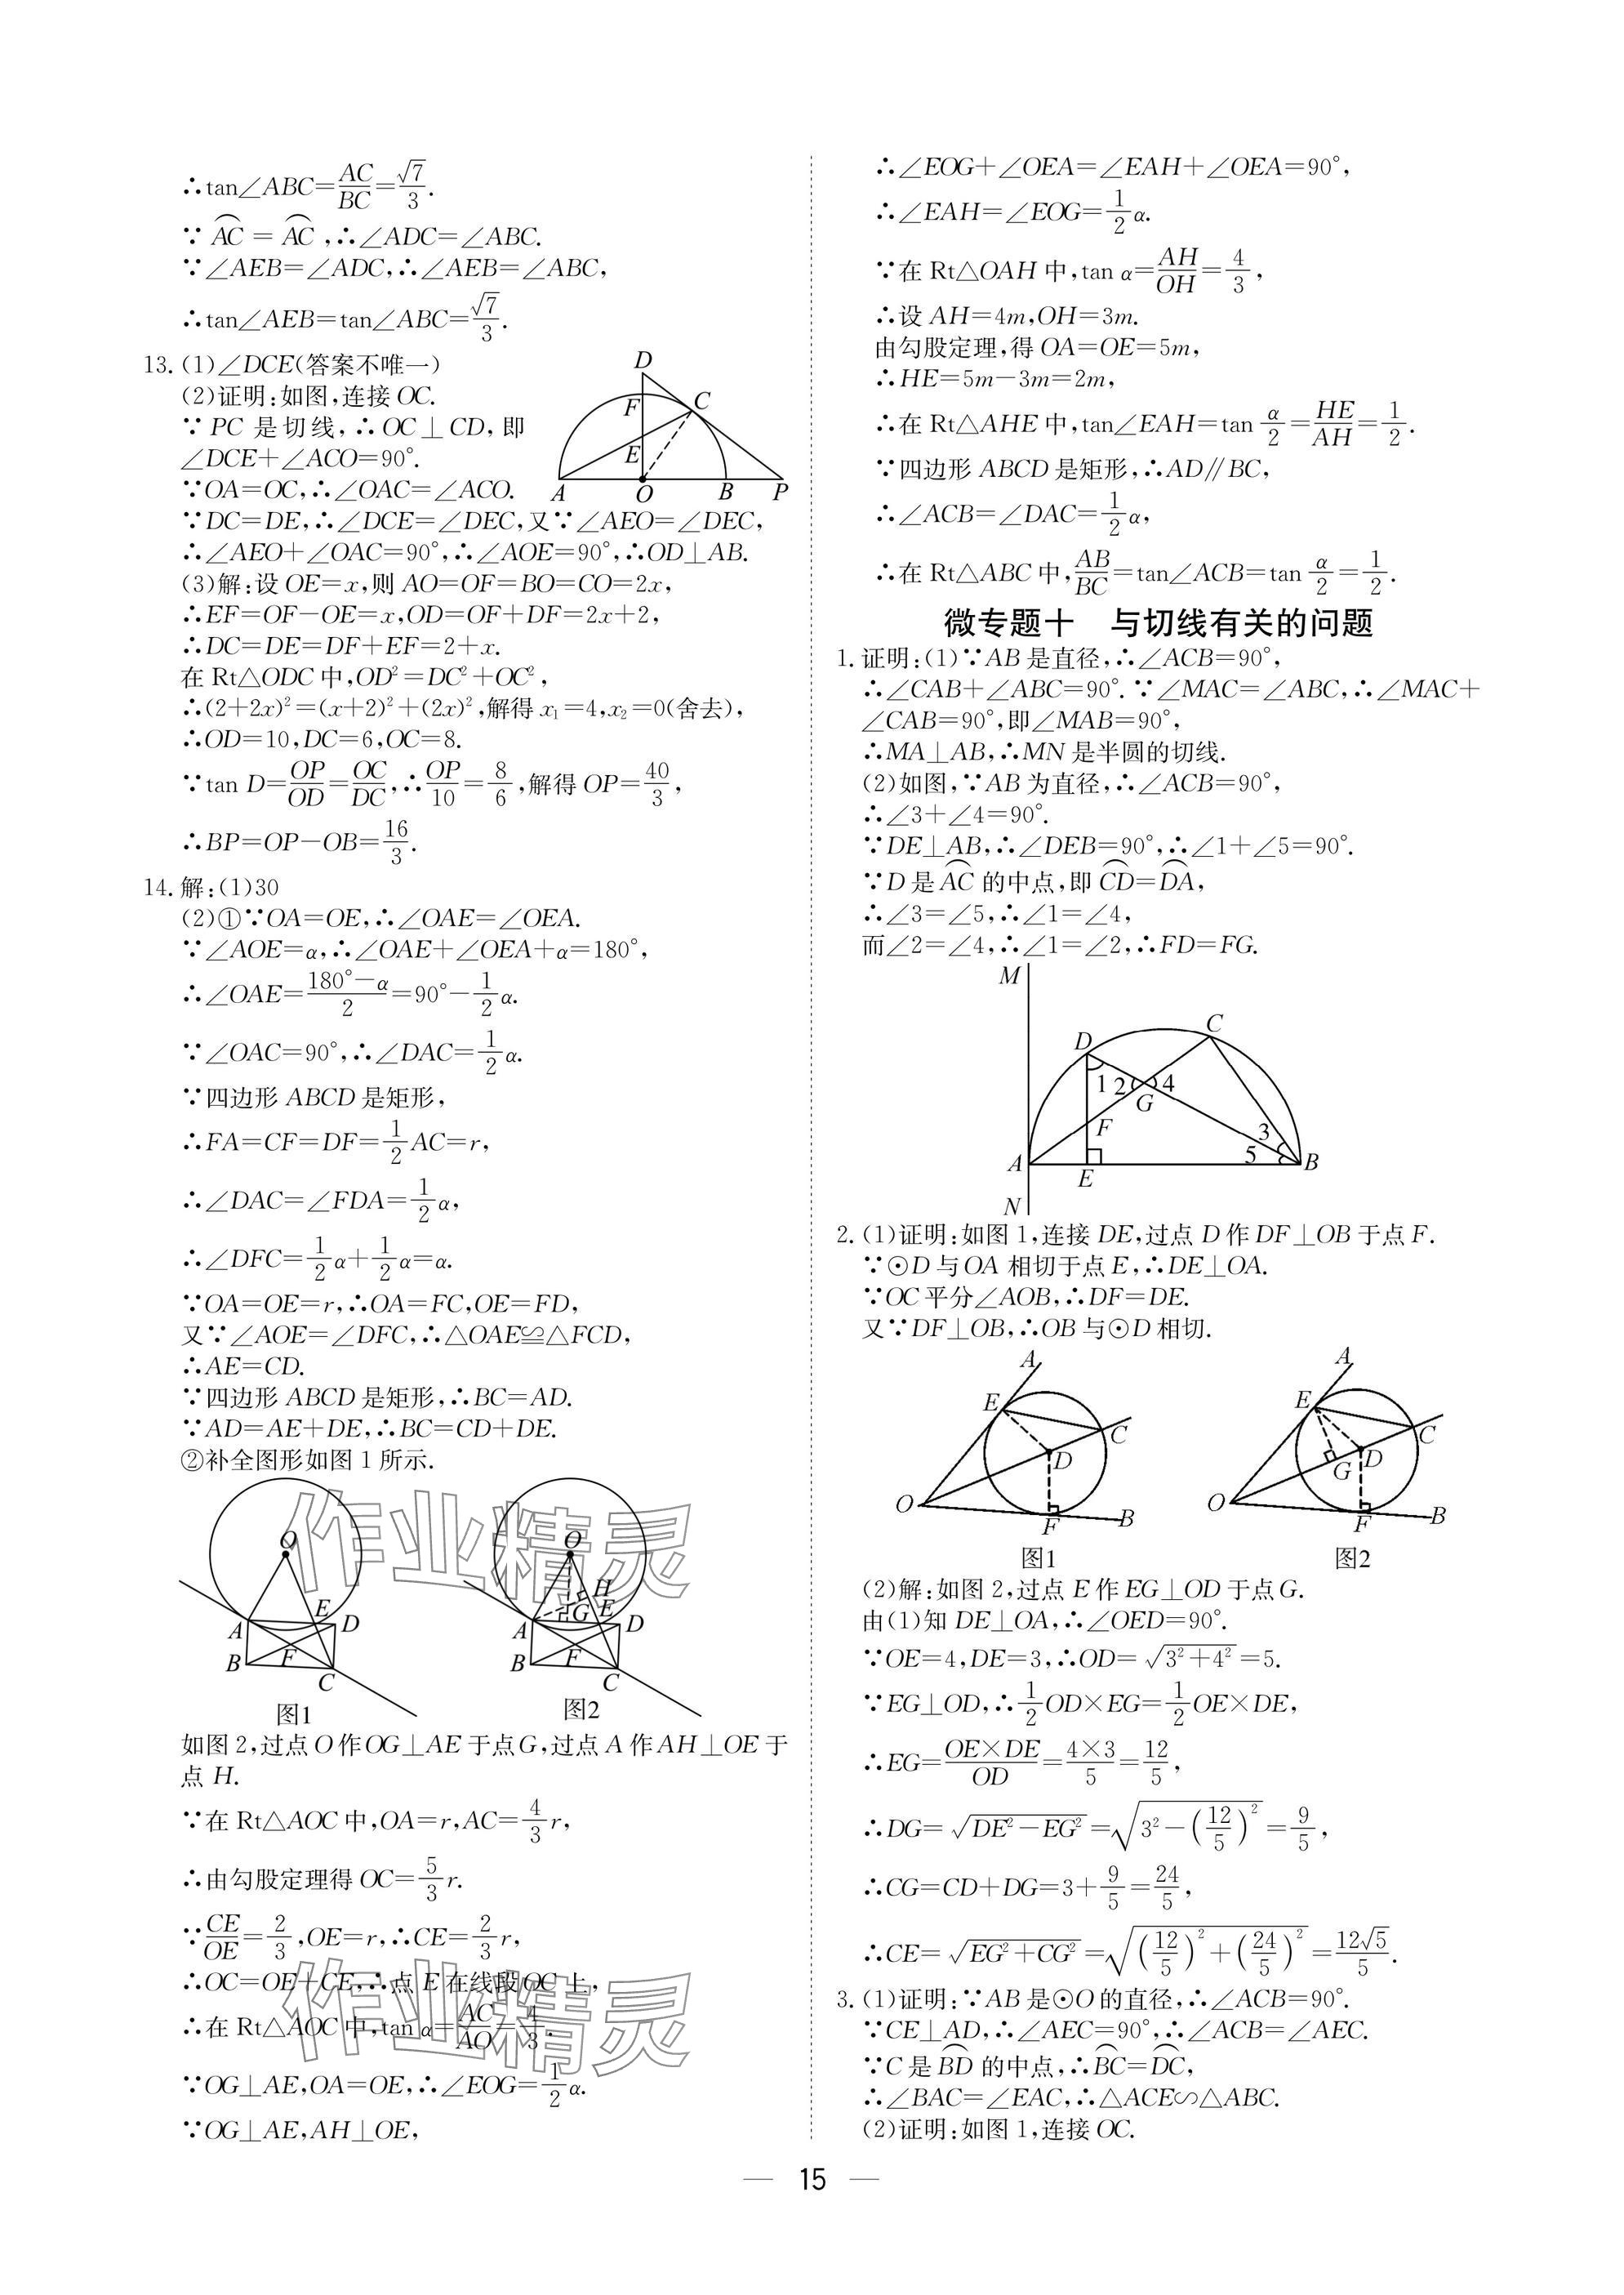 ∴tan∠ABC=AC/BC=√7/3.
∵AC⌒=AC⌒,∴∠ADC=∠ABC.
∵∠AEB=∠ADC,∴∠AEB=∠ABC,
∴tan∠AEB=tan∠ABC=√7/3.
13.(1)∠DCE(答案不唯一)
(2)证明:如图,连接OC.
∵PC是切线,∴OC⊥CD,即
∠DCE+∠ACO=90°.
∵OA=OC,∴∠OAC=∠ACO.
D
F
C
E
A
O
B
P
∵DC=DE,∴∠DCE=∠DEC,又∵∠AEO=∠DEC,
∴∠AEO+∠OAC=90°,∴∠AOE=90°,∴OD⊥AB.
(3)解:设OE=x,则AO=OF=BO=CO=2x,
∴EF=OF−OE=x,OD=OF+DF=2x+2,
∴DC=DE=DF+EF=2+x.
在Rt△ODC中,OD²=DC²+OC²,
∴(2+2x)²=(x+2)²+(2x)²,解得x₁=4,x₂=0(舍去),
∴OD=10,DC=6,OC=8.
∵tan D=OP/OD=OC/DC,∴OP/10=8/6,解得OP=40/3,
∴BP=OP−OB=16/3.
14.解:(1)30
(2)①∵OA=OE,∴∠OAE=∠OEA.
∵∠AOE=α,∴∠OAE+∠OEA+α=180°,
∴∠OAE=(180°−α)/2=90°−1/2α.
∵∠OAC=90°,∴∠DAC=1/2α.
∵四边形ABCD是矩形,
∴FA=CF=DF=1/2AC=r,
∴∠DAC=∠FDA=1/2α,
∴∠DFC=1/2α+1/2α=α.
∵OA=OE=r,∴OA=FC,OE=FD,
又∵∠AOE=∠DFC,∴△OAE≌△FCD,
∴AE=CD.
∵四边形ABCD是矩形,∴BC=AD.
∵AD=AE+DE,∴BC=CD+DE.
②补全图形如图1所示.
作业精灵
O
E
A
D
B
F
C
图1
O
H
G
E
A
D
B
F
C
图2
如图2,过点O作OG⊥AE于点G,过点A作AH⊥OE于
点H.
∵在Rt△AOC中,OA=r,AC=4/3r,
∴由勾股定理得OC=5/3r.
∵CE/OE=2/3,OE=r,∴CE=2/3r,
∴OC=OE+CE,∴点E在线段OC上,
作业精灵
∴在Rt△AOC中,tan α=AC/AO=4/3.
∵OG⊥AE,OA=OE,∴∠EOG=1/2α.
∵OG⊥AE,AH⊥OE,
∴∠EOG+∠OEA=∠EAH+∠OEA=90°,
∴∠EAH=∠EOG=1/2α.
∵在Rt△OAH中,tan α=AH/OH=4/3,
∴设AH=4m,OH=3m.
由勾股定理,得OA=OE=5m,
∴HE=5m−3m=2m,
∴在Rt△AHE中,tan∠EAH=tan α/2=HE/AH=1/2.
∵四边形ABCD是矩形,∴AD∥BC,
∴∠ACB=∠DAC=1/2α,
∴在Rt△ABC中,AB/BC=tan∠ACB=tan α/2=1/2.
微专题十 与切线有关的问题
1.证明:(1)∵AB是直径,∴∠ACB=90°,
∴∠CAB+∠ABC=90°.∵∠MAC=∠ABC,∴∠MAC+
∠CAB=90°,即∠MAB=90°,
∴MA⊥AB,∴MN是半圆的切线.
(2)如图,∵AB为直径,∴∠ACB=90°,
∴∠3+∠4=90°.
∵DE⊥AB,∴∠DEB=90°,∴∠1+∠5=90°.
∵D是AC⌒的中点,即CD⌒=DA⌒,
∴∠3=∠5,∴∠1=∠4,
而∠2=∠4,∴∠1=∠2,∴FD=FG.
M
C
D
1 2 4
G
F
3
5
A
E
B
N
2.(1)证明:如图1,连接DE,过点D作DF⊥OB于点F.
∵⊙D与OA相切于点E,∴DE⊥OA.
∵OC平分∠AOB,∴DF=DE.
又∵DF⊥OB,∴OB与⊙D相切.
A
E
C
D
O
F
B
图1
A
E
C
D
G
O
F
B
图2
(2)解:如图2,过点E作EG⊥OD于点G.
由(1)知DE⊥OA,∴∠OED=90°.
∵OE=4,DE=3,∴OD=√(3²+4²)=5.
∵EG⊥OD,∴1/2OD×EG=1/2OE×DE,
∴EG=(OE×DE)/OD=(4×3)/5=12/5,
∴DG=√(DE²−EG²)=√(3²−(12/5)²)=9/5,
∴CG=CD+DG=3+9/5=24/5,
∴CE=√(EG²+CG²)=√((12/5)²+(24/5)²)=12√5/5.
3.(1)证明:∵AB是⊙O的直径,∴∠ACB=90°.
∵CE⊥AD,∴∠AEC=90°,∴∠ACB=∠AEC.
∵C是BD⌒的中点,∴BC⌒=DC⌒,
∴∠BAC=∠EAC,∴△ACE∽△ABC.
(2)证明:如图1,连接OC.
— 15 —